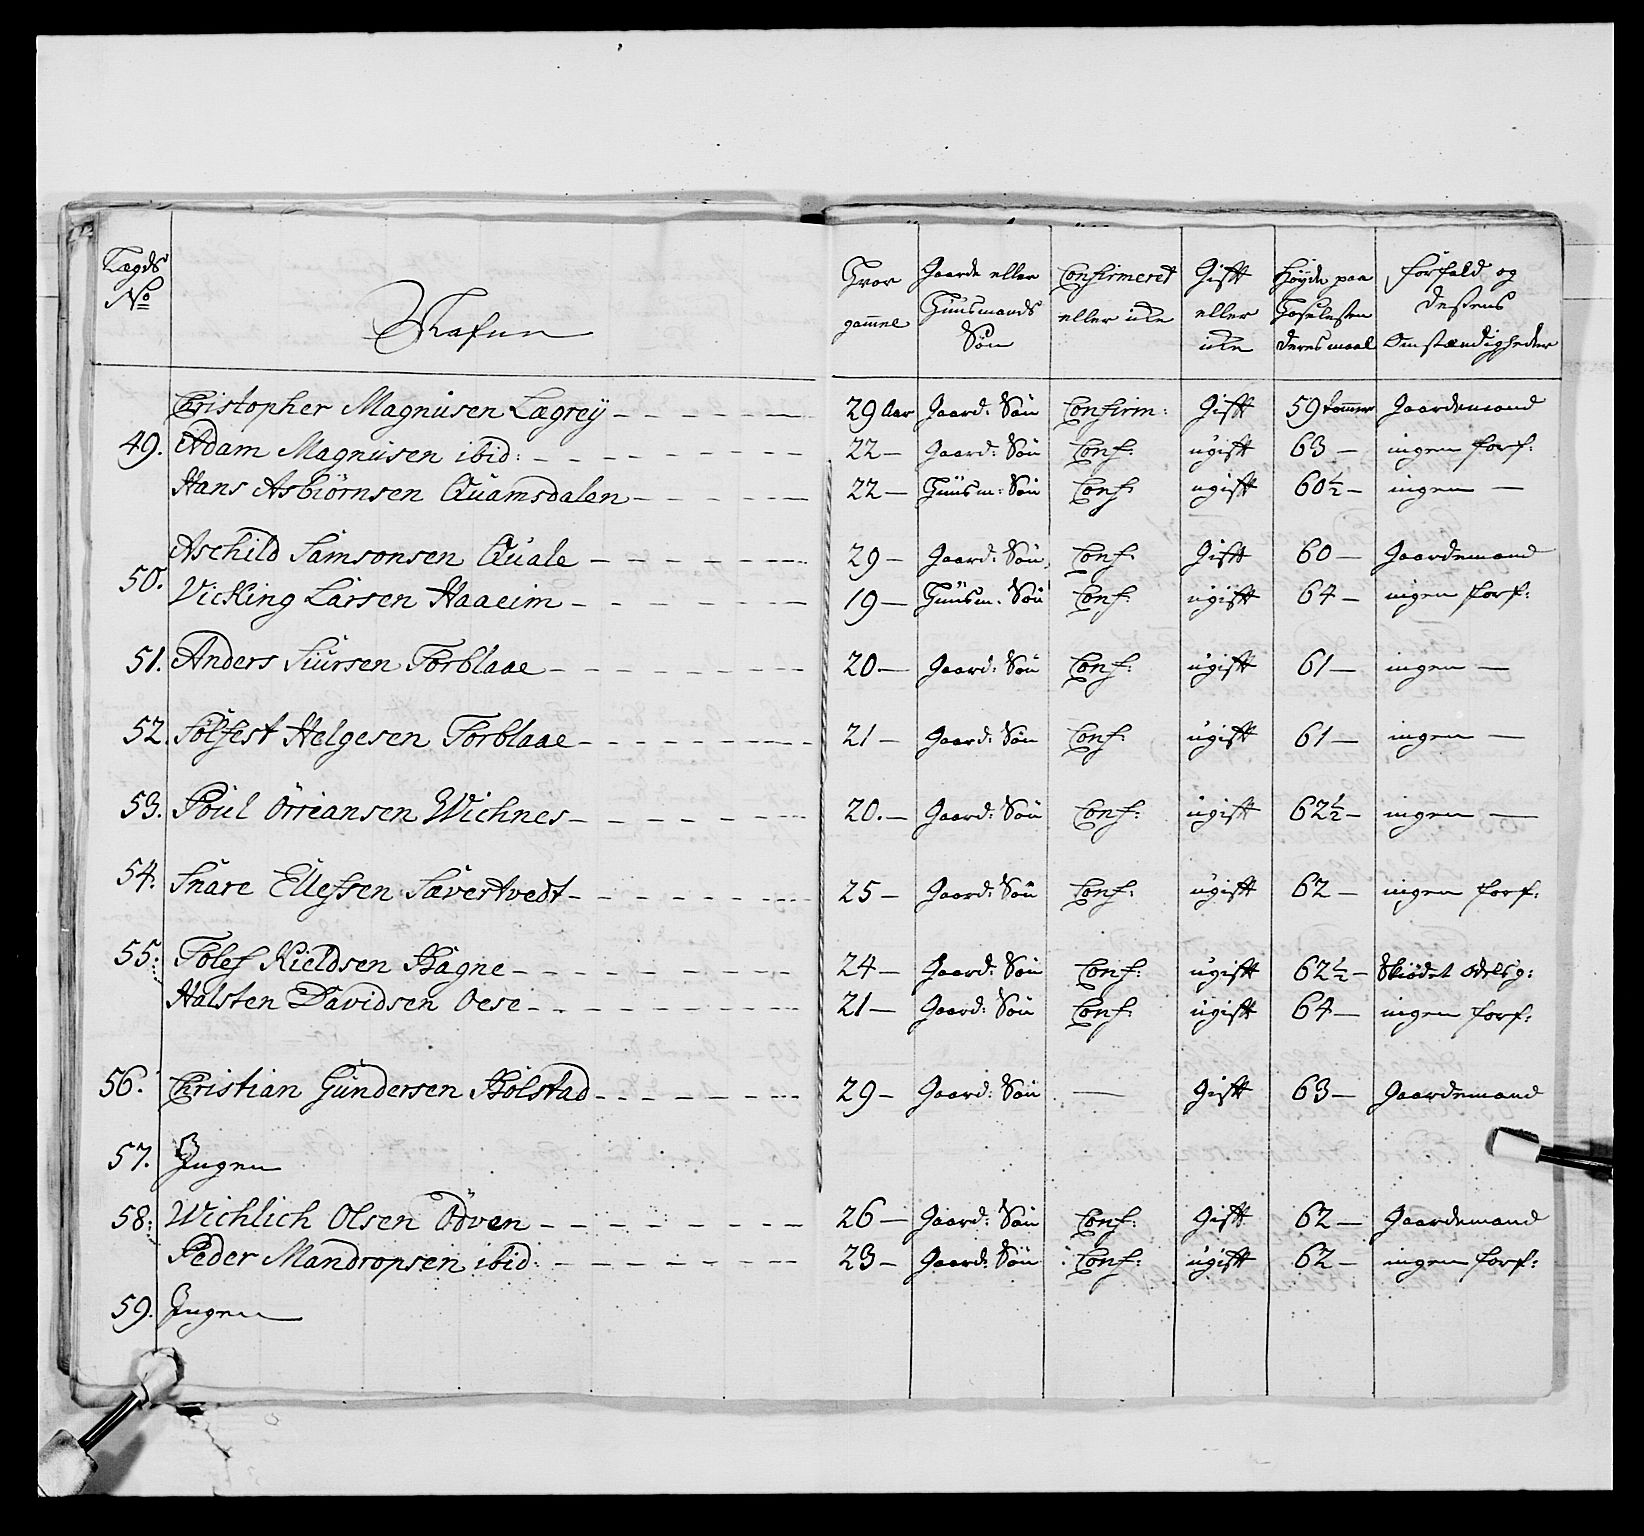 Lægds No | Nafnn | Hvor gammel | Gaards eller Huusmands Søn | Confirmeret eller icke | Gift eller icke | Høyde paa Hoselesten deres maal | forfald og desens Omstændigheder
Christopher Magnusen Lægrey | 29 Aar | Gaard: Søn | Confirm: | Gift | 59 tommer | Gaardemand
49. Adam Magnusen ibid: | 22 — | Gaard: Søn | Conf: | ugift | 63 — | ingen forf:
Hans Asbiørnsen Quamsdalen | 22 — | Huusm: Søn | Conf: | ugift | 60½ — | ingen —
50. Aschild Samsonsen Quale | 29 — | Gaard: Søn | Conf: | Gift | 60 — | Gaardemand
Vicking Larsen Haaeim | 19 — | Huusm. Søn | Conf: | ugift | 64 — | ingen forf:
51. Anders Siursen Torblaae | 20 — | Gaard: Søn | Conf: | ugift | 61 — | ingen —
52. Solfest Helgesen Torblaae | 21 — | Gaard: Søn | Conf: | ugift | 61 — | ingen —
53. Poul Ørreansen Wichnes | 20. — | Gaard: Søn | Conf: | ugift | 62½ — | ingen —
54. Snare Ellefsen Sævertvedt | 25 — | Gaard: Søn | Conf: | ugift | 62 — | ingen forf:
55: Tolef Kieldsen Bagne | 24 — | Gaard: Søn | Conf: | ugift | 62½ — | Skiødet odelsg:
Halsten Davidsen Oese | 21 — | Gaard: Søn | Conf: | ugift | 64 — | ingen forf:
56. Christian Gundersen Bolstad | 29 — | Gaard: Søn | — | Gift | 63 — | Gaardemand
57. Ingen
58: Wichlich Olsen Odven | 26 — | Gaard: Søn | Conf: | Gift | 62 — | Gaardemand
Peder Mandropsen ibid: | 23 — | Gaard: Søn | Conf: | ugift | 62 — | ingen forf:
59. Ingen